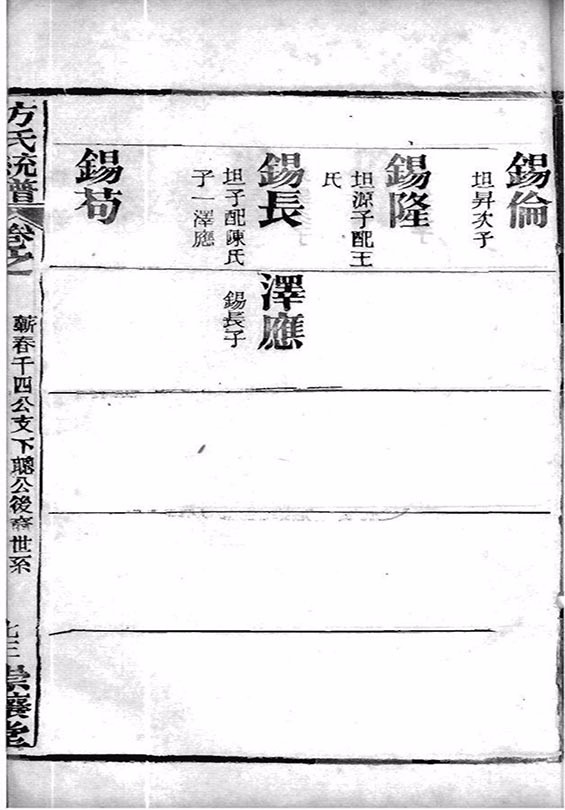 錫倫
坦昇次子
錫隆
坦源子配王
氏
錫長
坦子配陳氏
子一澤應
錫苟
澤應
錫長子
方氏統譜
卷之
蘄春千四公支下聰公後裔世系
七三
崇讓堂